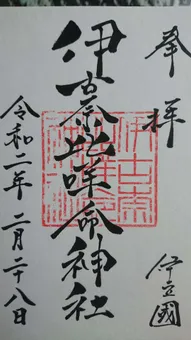 奉拝
伊豆國
伊古奈比咩命神社
令和二年二月二十八日